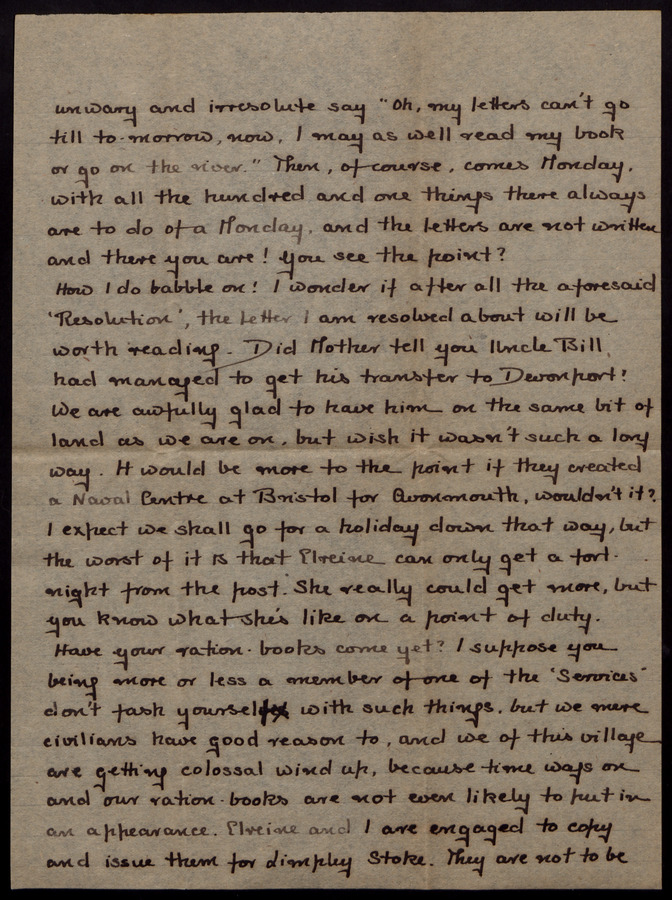 unwary and irresolute say "Oh, my letters can't go
till to-morrow, now, I may as well read my book
or go on the river." Then, of course, comes Monday,
with all the hundred and one things there always
are to do of a Monday, and the letters are not written
and there you are! You see the point?
How I do babble on! I wonder if after all the aforesaid
'Resolution', the letter I am resolved about will be
worth reading. Did Mother tell you Uncle Bill
had managed to get his transfer to Devonport!
We are awfully glad to have him on the same bit of
land as we are on, but wish it wasn't such a long
way. It would be more to the point if they created
a Naval Centre at Bristol for Avonmouth, wouldn't it?
I expect we shall go for a holiday down that way, but
the worst of it is that Elreine can only get a fort-
night from the post. She really could get more, but
you know what she's like on a point of duty.
Have your ration-books come yet? I suppose you
being more or less a member of one of the 'Services'
don't fash yourself with such things, but we mere
civilians have good reason to, and we of this village
are getting colossal wind up, because time wags on
and our ration-books are not even likely to put in
an appearance. Elreine and I are engaged to copy
and issue them for Limpley Stoke. They are not to be